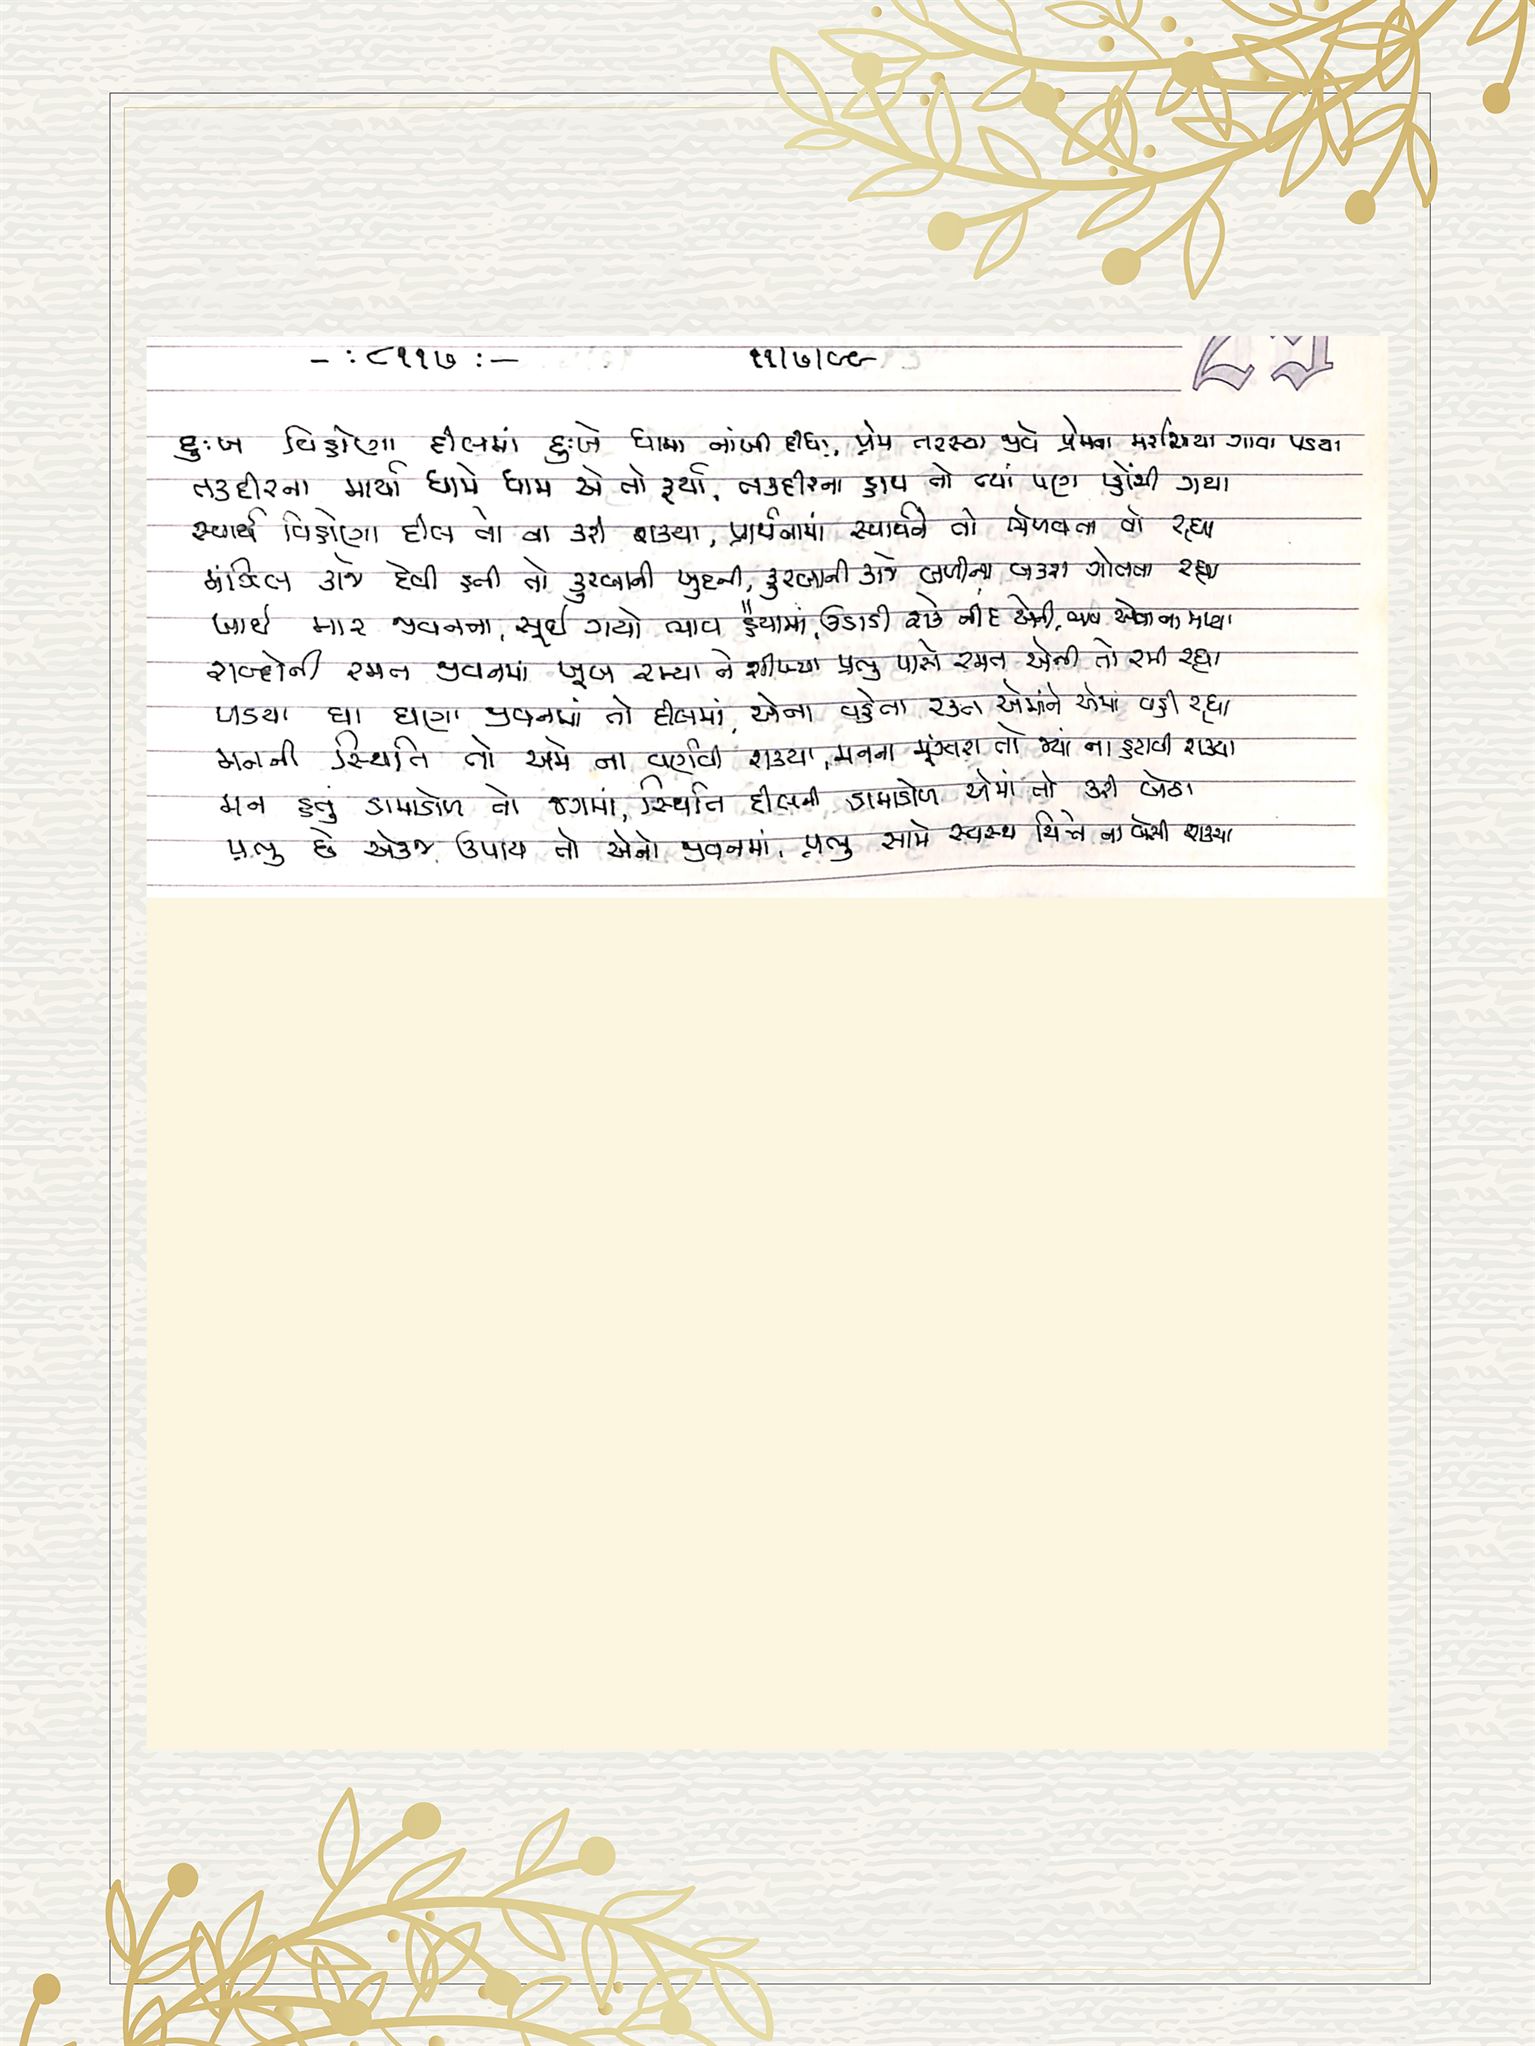 - : ૮૧૧૭ : - ૧૧/૭/૯૯
દુઃખ વિહોણા દીલમાં દુઃખે ધામા નાંખી દીધા, પ્રેમ તરસ્યા જીવે પ્રેમના મરશિયા ગાવા પડયા
તકદીરના માર્યા ધામે ધામ એ તો ફર્યા, તકદીરના હાથ તો ત્યાં પણ પ્હોંચી ગયા
સ્વાર્થ વિહોણા દીલ તો ના કરી શક્યા, પ્રાર્થનામાં સ્વાર્થને તો ભેળવતા તો રહ્યા
મંઝિલ કાજે દેવી હતી તો કુરબાની ખુદની, કુરબાની કાજે બળીના બકરા ગોતતા રહ્યા
ખાઈ માર જીવનના, સૂઈ ગયો ભાવ હૈયામાં, ઉડાડી શકે નીંદ એની, ભાવ એવા ના મળ્યા
શબ્દોની રમત જીવનમાં ખૂબ રમ્યા ને શીખ્યા પ્રભુ પાસે રમત એની તો રમી રહ્યા
પડયા ઘા ઘણા જીવનમાં તો દીલમાં, એના વહેતા રક્ત એમાંને એમાં વહી રહ્યા
મનની સ્થિતિ તો અમે ના વર્ણવી શક્યા, મનના મૂંઝારા તો જ્યાં ના હટાવી શક્યા
મન હતું ડામાડોળ તો જગમાં, સ્થિતિ દીલની ડામાડોળ એમાં તો કરી બેઠા
પ્રભુ છે એકજ ઉપાય તો એનો જીવનમાં, પ્રભુ સામે સ્વસ્થ ચિત્તે ના બેસી શક્યા